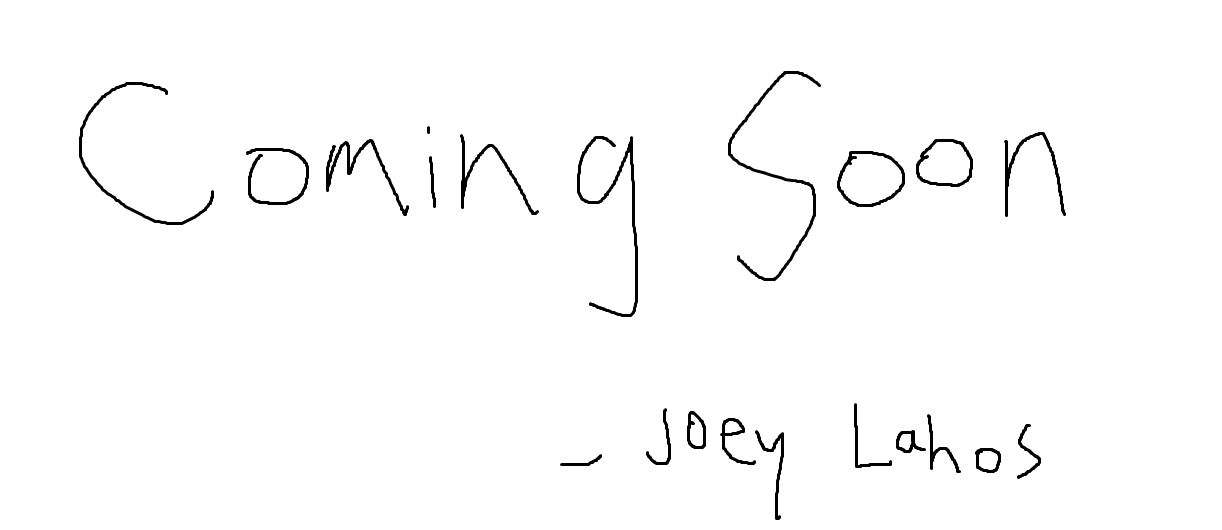 Coming Soon
- Joey Lahos